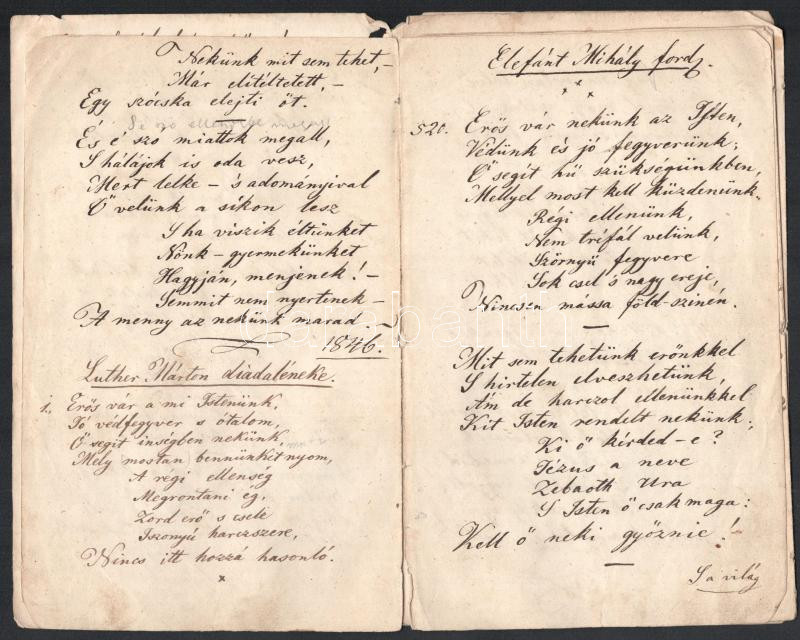 Nekünk mit sem tehet, –
Már elitéltetett, –
Egy szócska elejti őt.
És é szó miattok megall,
S hálájok is oda vesz,
Mert lelke – 's adományival
Ő velünk a síkon lesz
S ha viszik éltünket
Nőnk – gyermekünket
Hagyján, menjenek! –
Semmit nem nyertenek –
A menny az nekünk marad. –
1846.
Luther Márton diadaléneke.
1., Erős vár a mi Istenünk,
Jó védfegyver s ótalom,
Ő segit inségben nekünk,
Mely (mostan) bennünket nyom,
A régi ellenség
Megrontani ég,
Zord erő s csele
Iszonyú harczszere,
Nincs itt hozzá hasonló.
x
Elefánt Mihály ford.
x x x
520. Erős vár nekünk az Isten,
Védünk és jó fegyverünk;
Ő segit hű szükségünkben,
Mellyel most kell küzdenünk.
Régi ellenünk,
Nem tréfál velünk,
Szörnyű fegyvere
Sok csel 's nagy ereje,
Nincsen mássa föld-szinén.
Mit sem tehetünk erőnkkel
S hirtelen elveszhetünk,
Ám de harczol ellenünkkel
Kit Isten rendelt nekünk;
Ki ő kérded-e?
Jézus a neve
Zebaoth Ura
S Isten ő csak maga:
Kell ő neki győznie!
S a világ
darabanth